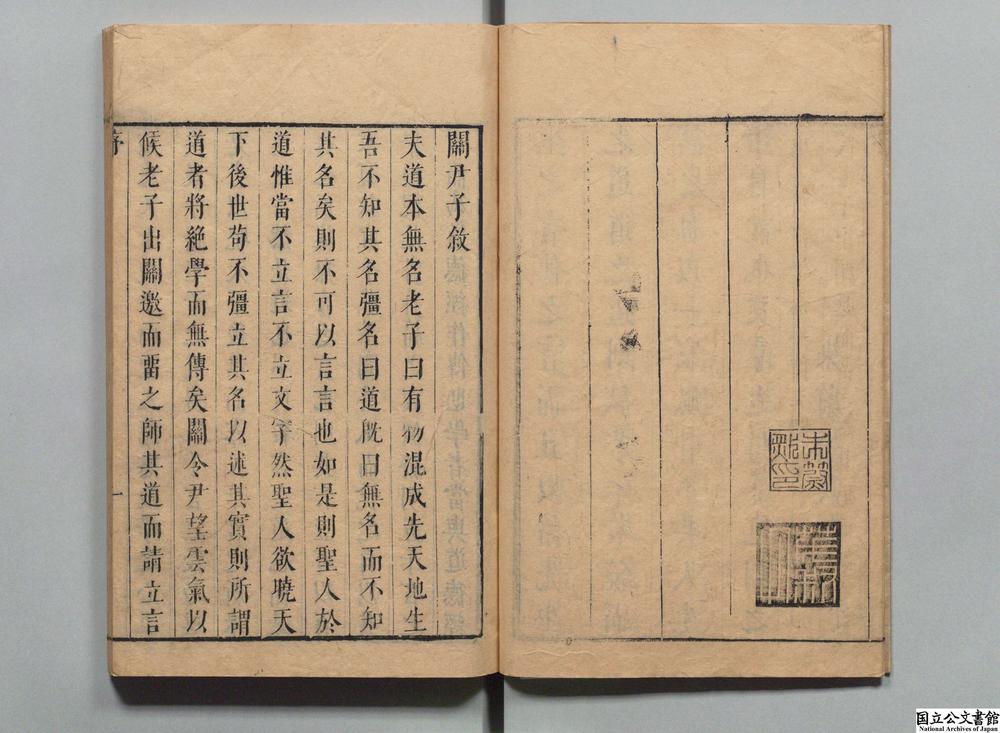 關尹子敘
夫道本無名老子曰有物混成先天地生
吾不知其名彊名曰道既曰無名而不知
其名矣則不可以言言也如是則聖人於
道惟當不立言不立文字然聖人欲曉天
下後世苟不彊立其名以述其實則所謂
道者將絶學而無傳矣關令尹望雲氣以
候老子出關邀而畱之師其道而請立言
序
一
国立公文書館
National Archives of Japan